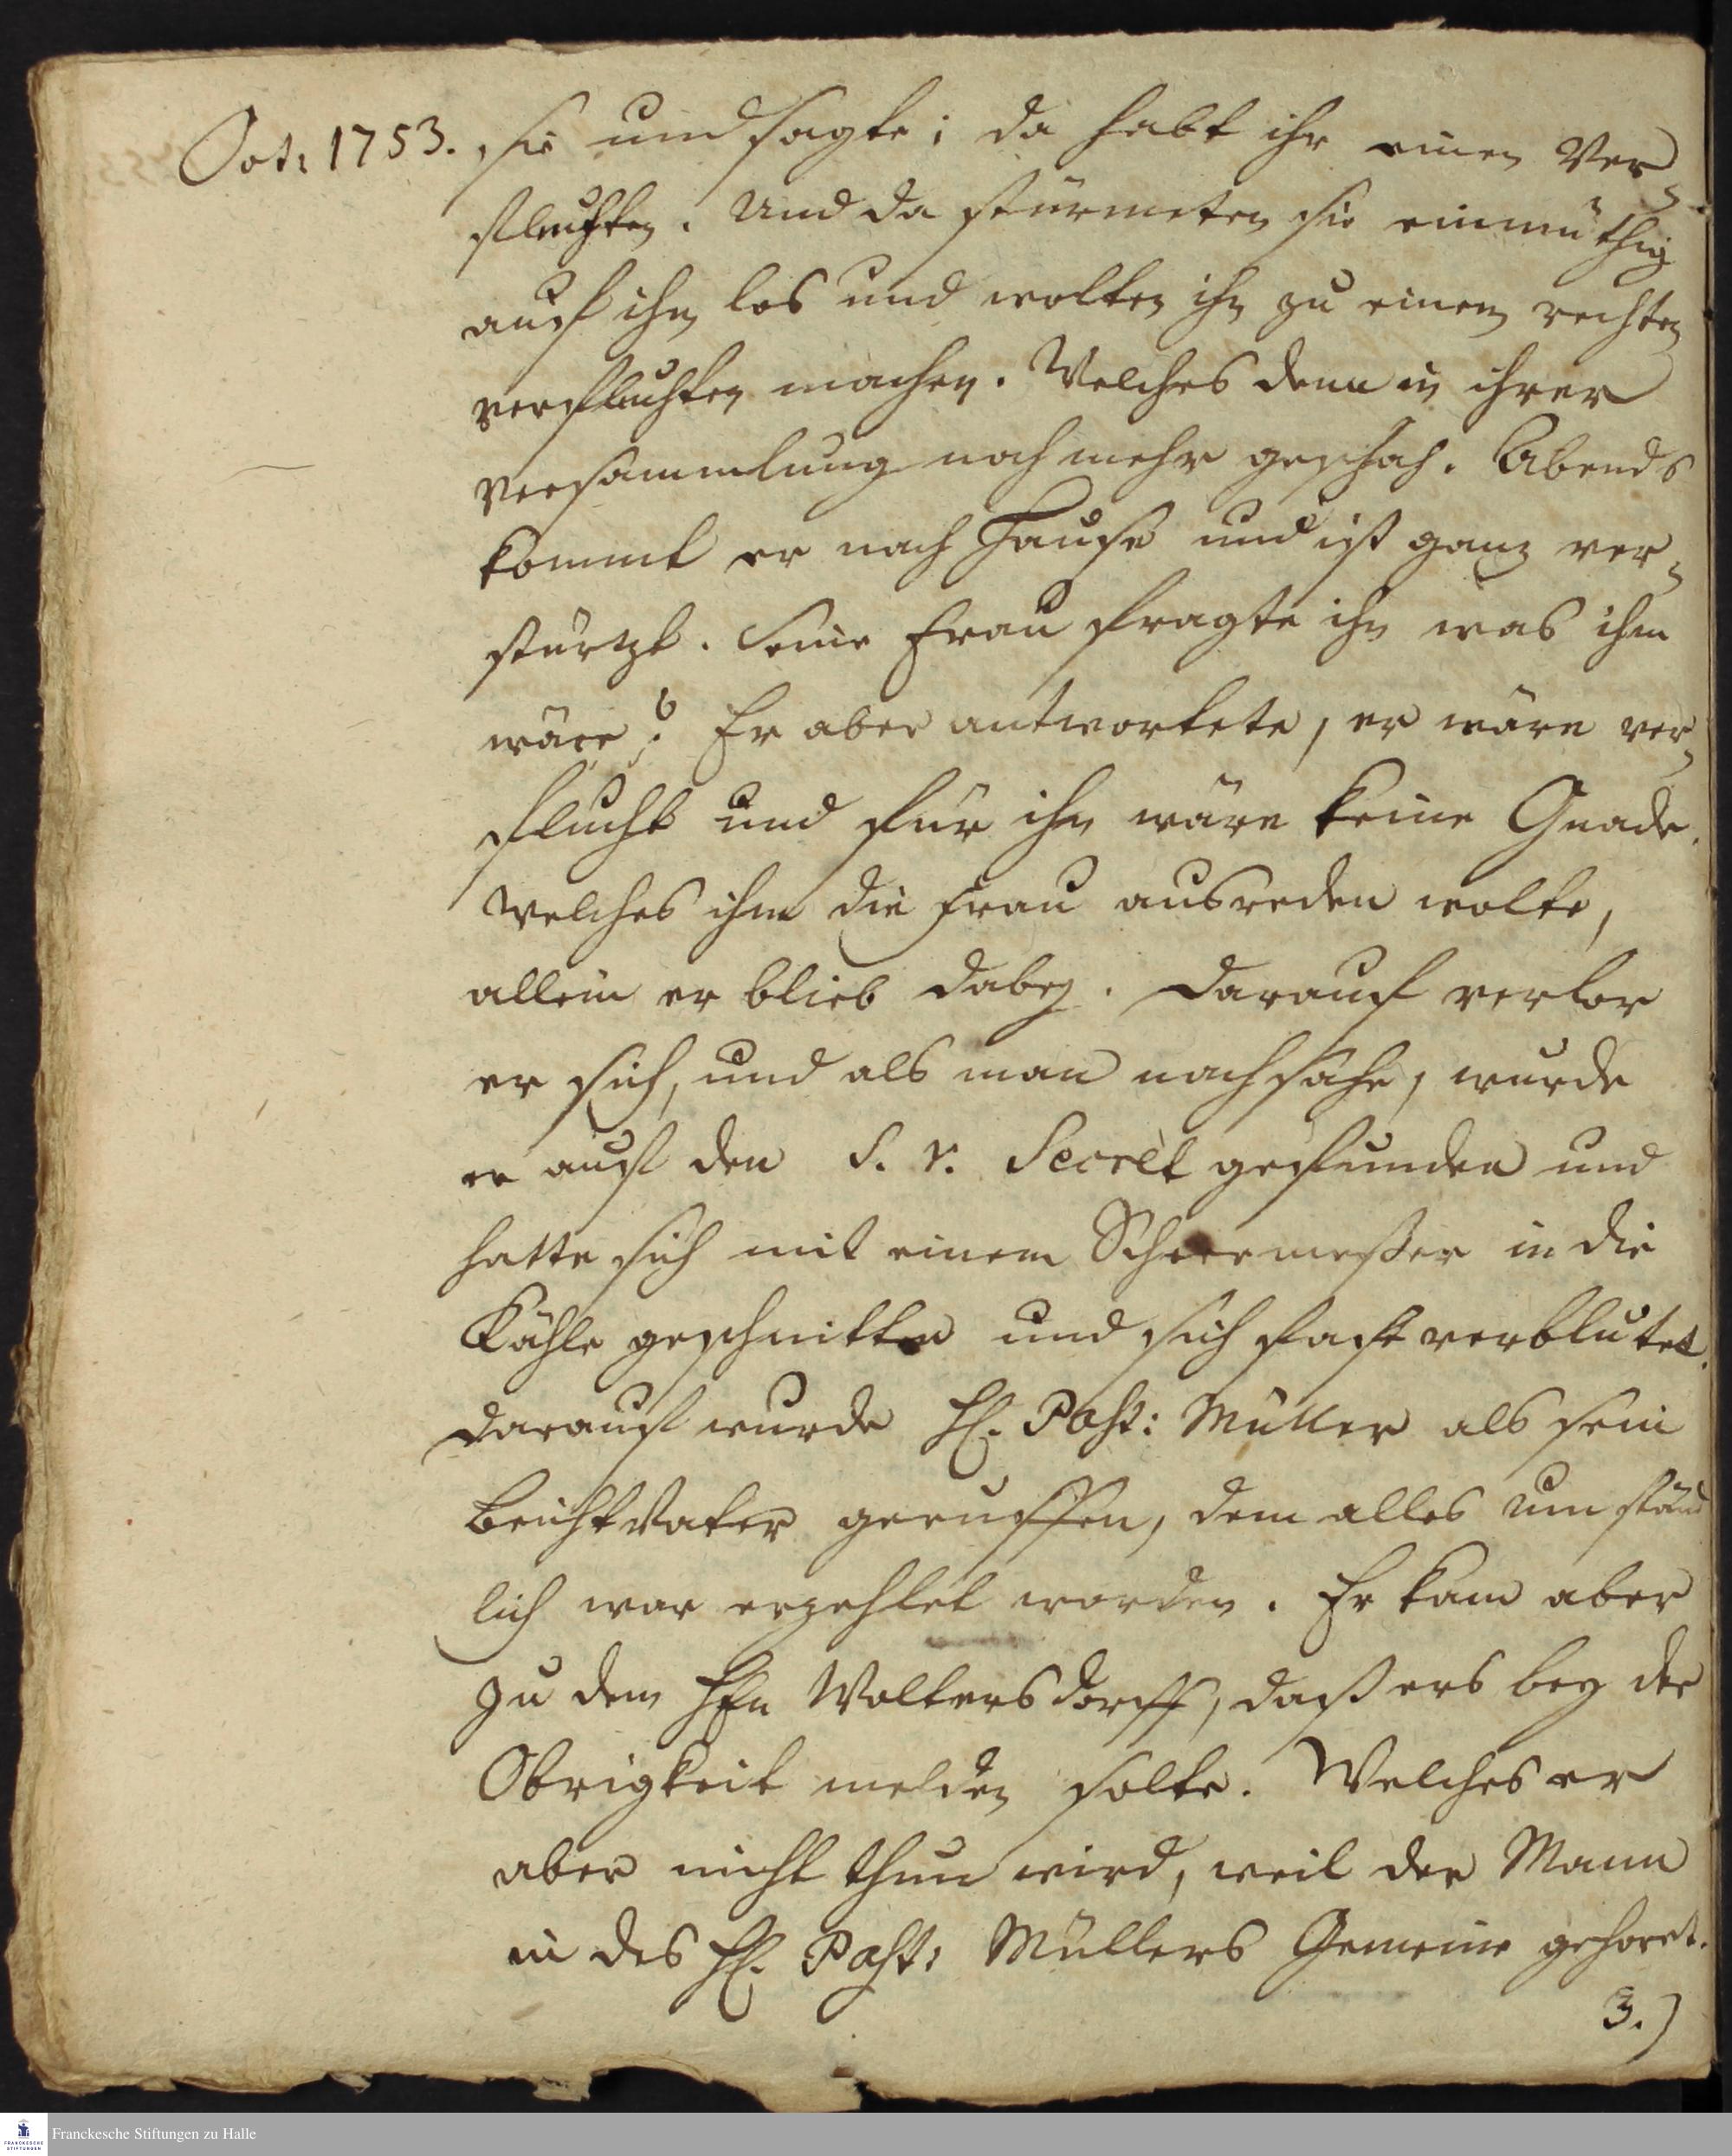 Oct: 1753. sie und sagte; da habt ihr einen Ver-
fluchten. Und da stürmeten sie einmüthig
auf ihn los und wolten ihn zu einem rechten
verfluchten machen. Welches denn in ihrer
Versammlung noch mehr geschah. Abends
kommt er nach Hause und ist ganz ver-
stürtzt. Seine Frau fragte ihn was ihm
wäre? Er aber antwortete, er wäre ver-
flucht und für ihn wäre keine Gnade.
Welches ihm die Frau ausreden wolte,
allein er blieb dabey. Darauf verlor
er sich, und als man nachsahe, wurde
er auf den S. v. Secrèt gefunden und
hatte sich mit einem Scheermeßer in die
Kähle geschnitten und sich fast verblutet.
Darauf wurde H. Past: Müller als sein
Beichtvater geruffen, dem alles umständ
lich war erzehlet worden. Er kam aber
zu dem HEn Woltersdorff, daß ers bey der
Obrigkeit melden solte. Welches er
aber nicht thun wird, weil der Mann
in des H. Past: Müllers Gemeine gehoret.
3.)
Franckesche Stiftungen zu Halle
FRANCKESCHE
STIFTUNGEN